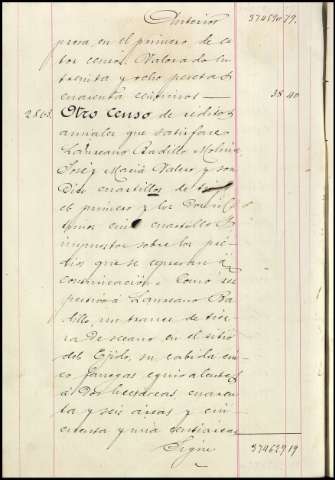 Anterior 374590 79.
prosa, en el primero de es
tos censos. Valorado en
treinta y ocho pesetas
cuarenta centimos 38 40
Otro censo de réditos
anuales que satisface
Laureano Badillo Molina
José y Maria Valero, y son
Diez cuartillos de
el primero y los Domicilio
cinco cuartillos
impuestos sobre los pre
dios que se espresan á
continuacion. Como res
pectivo á Laureano Ba
dillo, un trance de tier
ra de secano en el sitio
del Ejido, su cabida cin
co fanegas equivalentes
á dos hectareas cuaren
ta y seis áreas y cin
cuenta y una centiareas
Sigue 374629 19